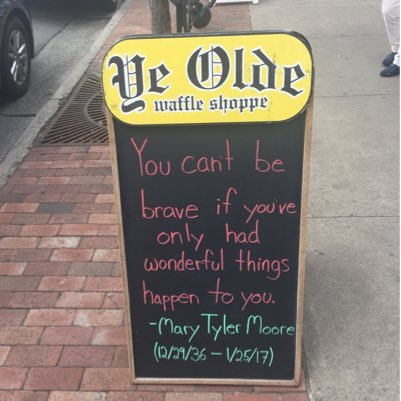 Ye Olde
waffle shoppe
You can't be
brave if you've
only had
wonderful things
happen to you.
-Mary Tyler Moore
(12/29/36 - 1/25/17)